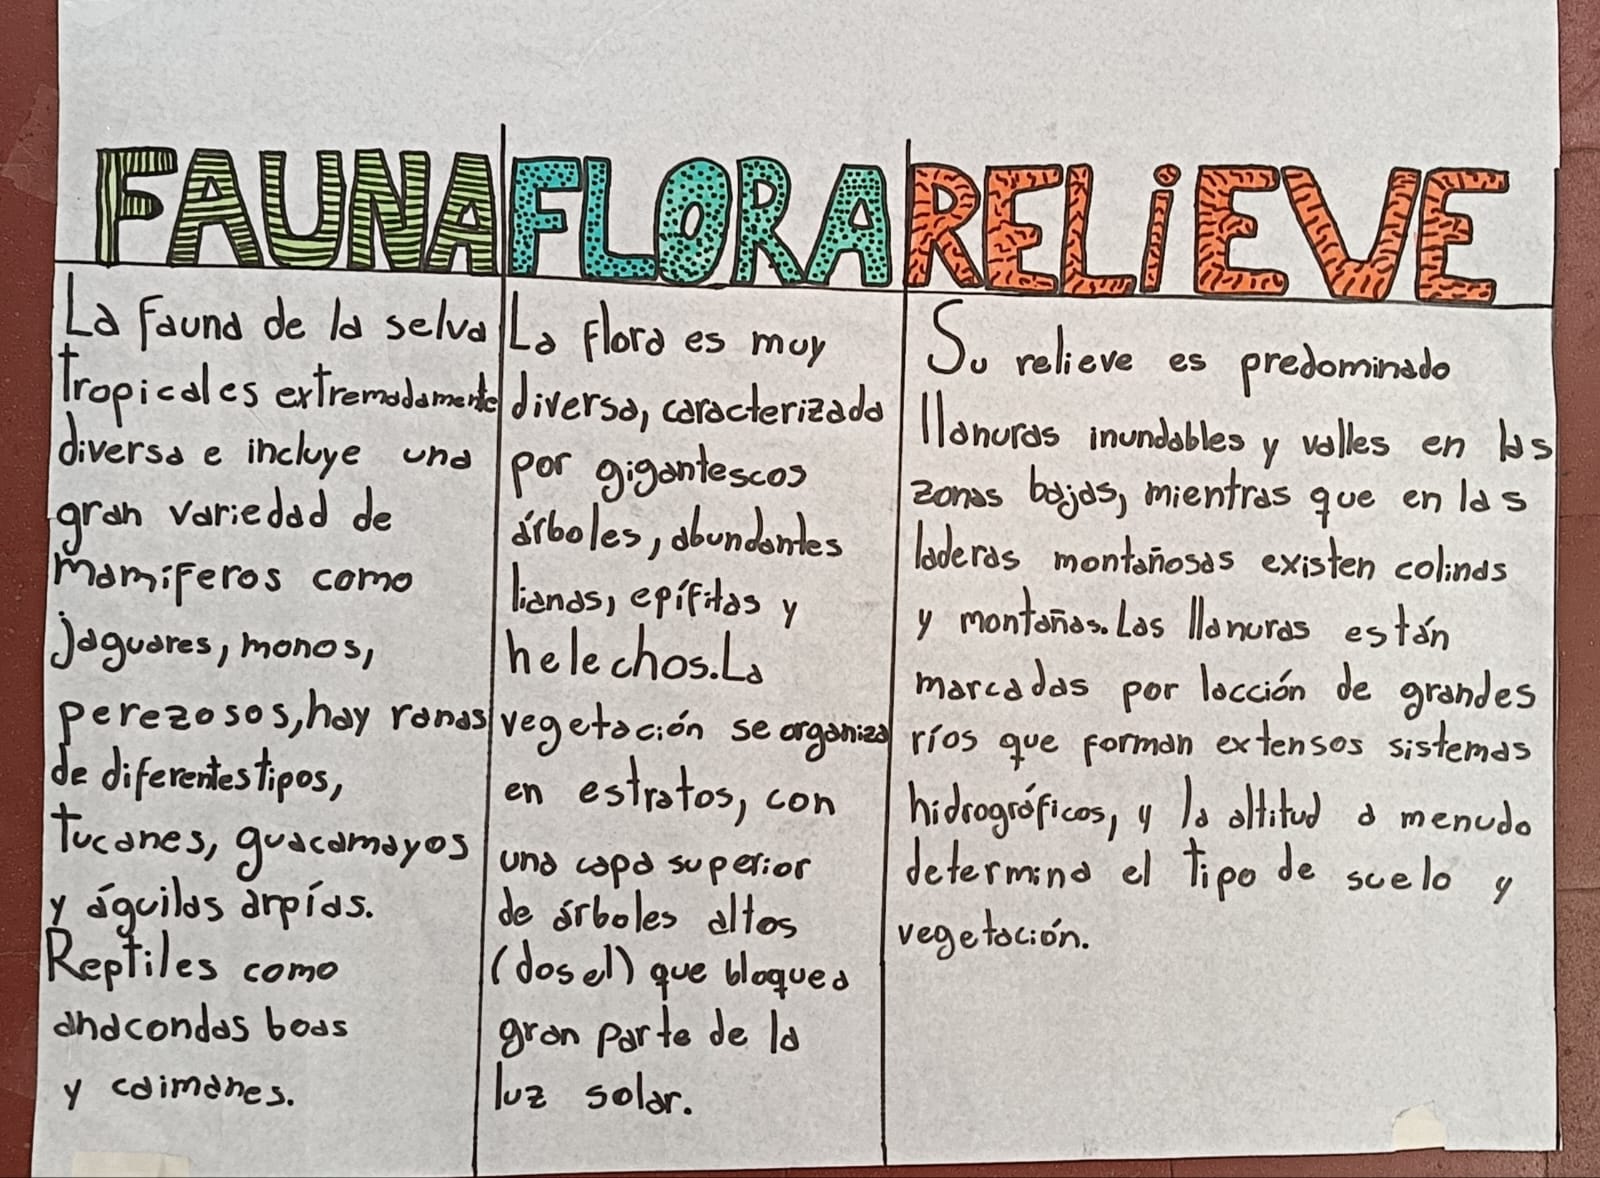 FAUNA
La fauna de la selva
tropical es extremadamente
diversa e incluye una
gran variedad de
mamíferos como
jaguares, monos,
perezosos, hay ranas
de diferentes tipos,
tucanes, guacamayos
y águilas arpías.
Reptiles como
anacondas boas
y caimanes.
FLORA
La flora es muy
diversa, caracterizada
por gigantescos
árboles, abundantes
lianas, epífitas y
helechos. La
vegetación se organiza
en estratos, con
una capa superior
de árboles altos
(dosel) que bloquea
gran parte de la
luz solar.
RELiEVE
Su relieve es predominado
llanuras inundables y valles en las
zonas bajas, mientras que en las
laderas montañosas existen colinas
y montañas. Las llanuras están
marcadas por lacción de grandes
ríos que forman extensos sistemas
hidrográficos, y la altitud a menudo
determina el tipo de suelo y
vegetación.